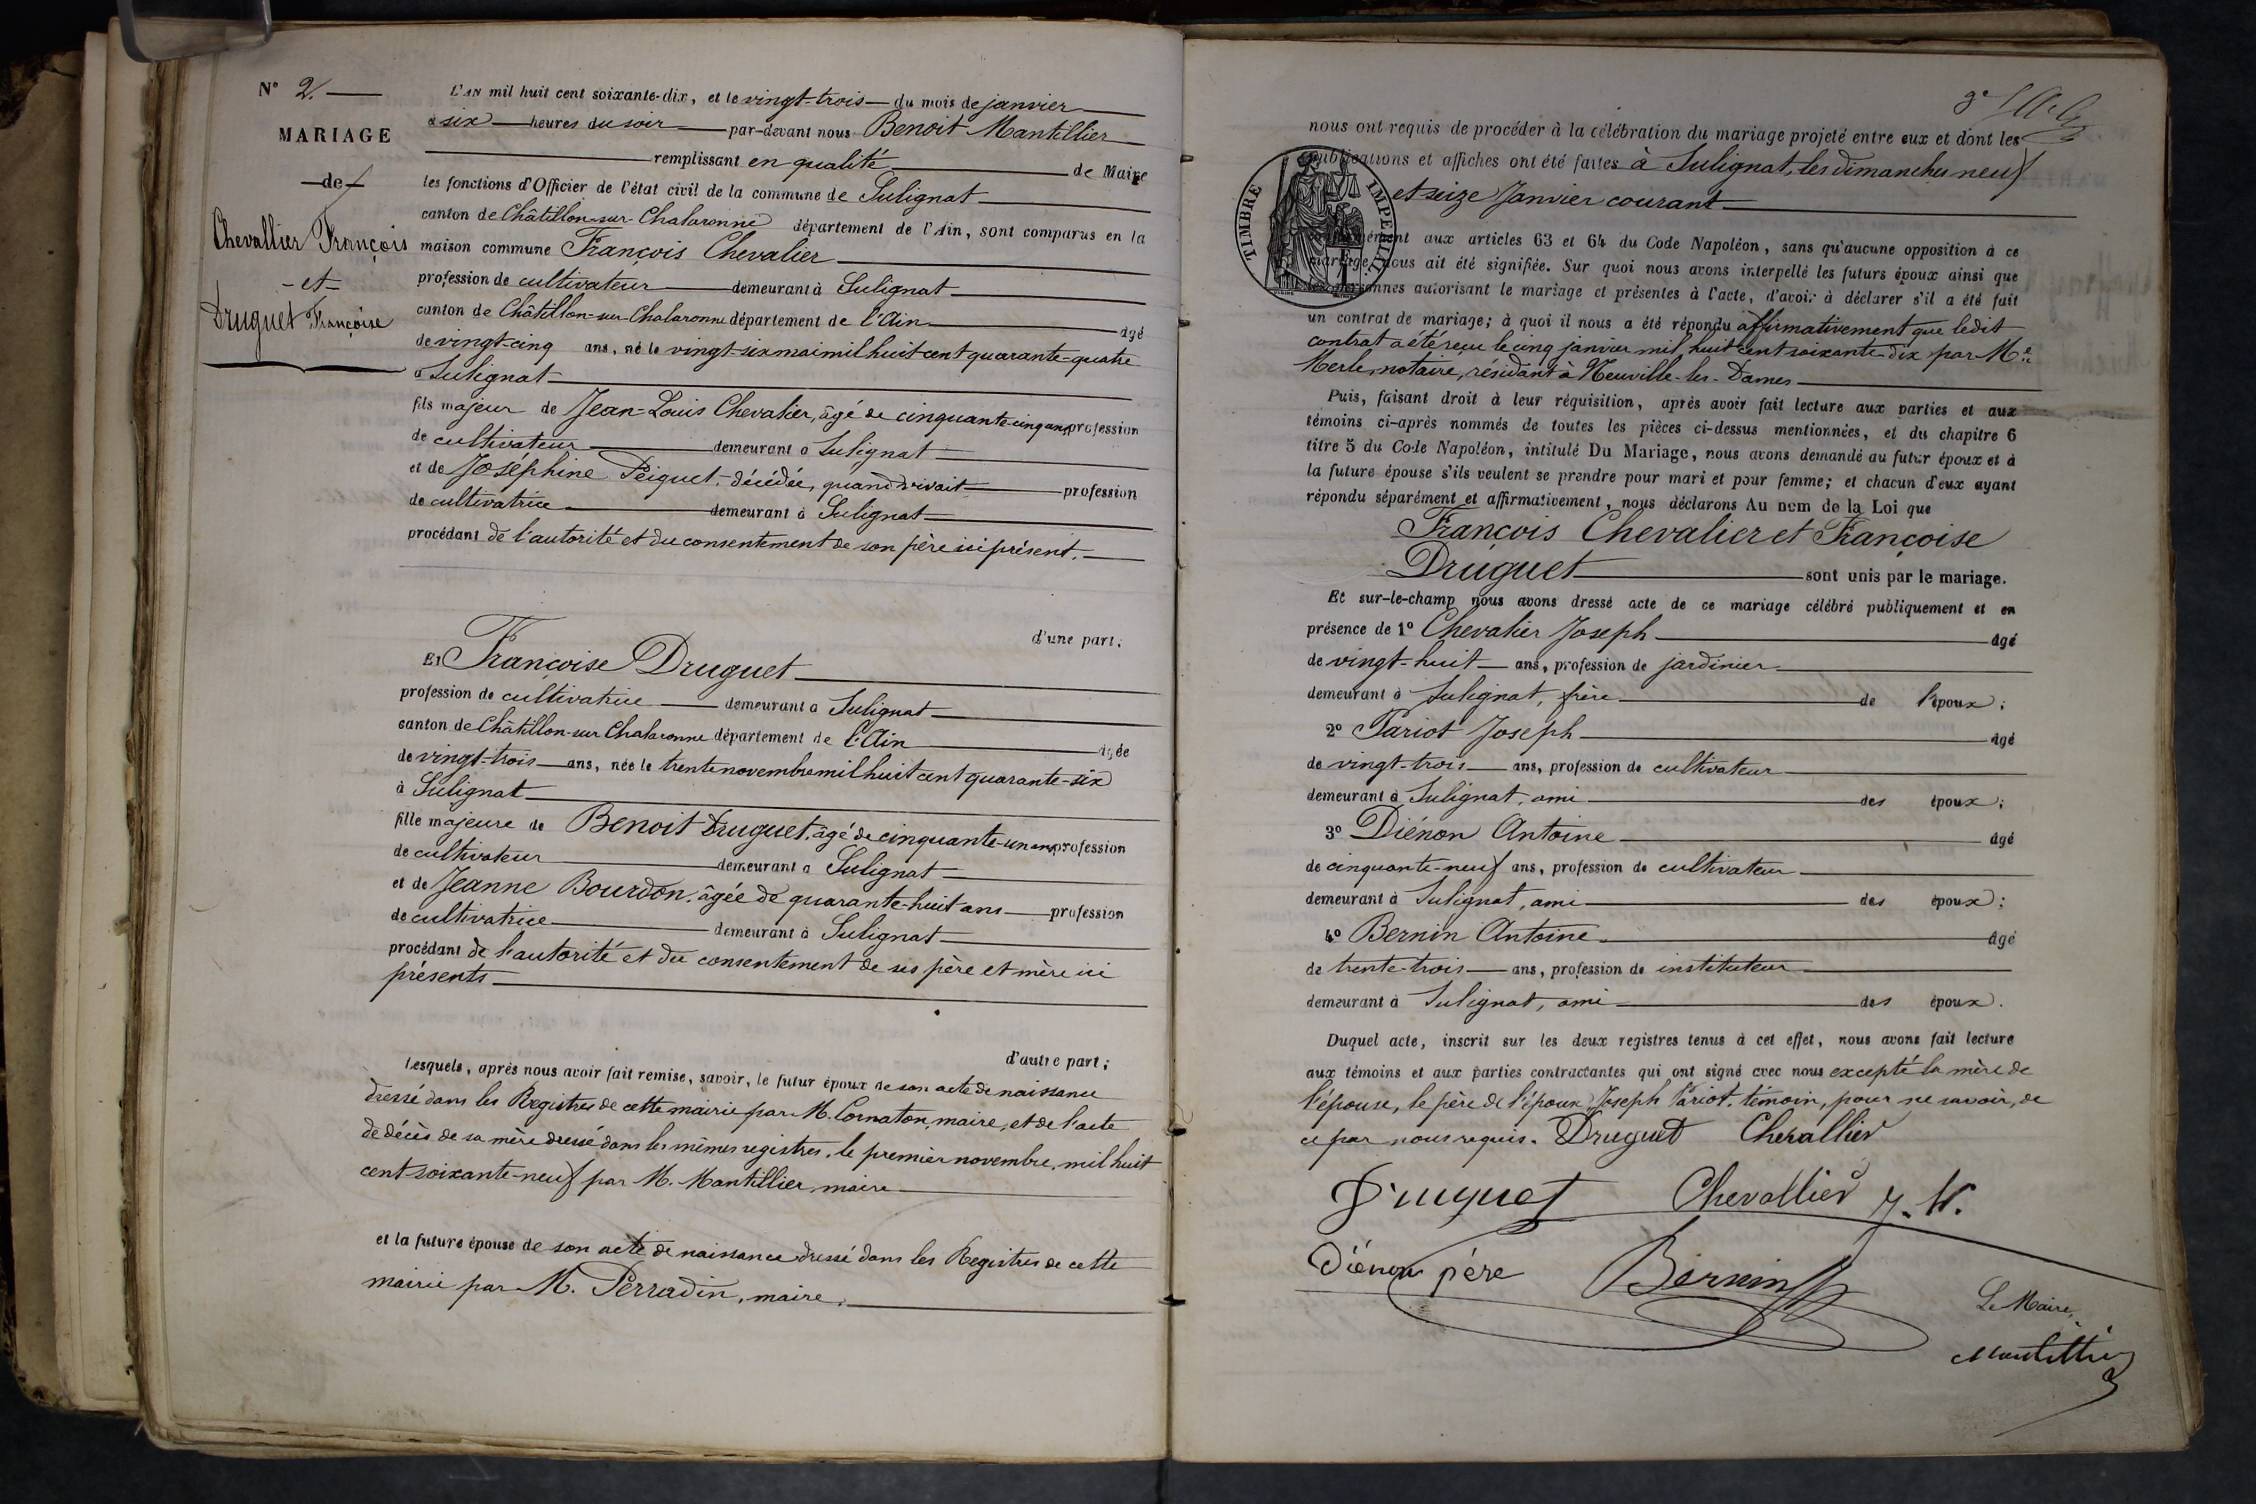 N° 2.
MARIAGE
de
Chevallier François
et
Druguet Françoise
L'AN mil huit cent soixante-dix, et le vingt-trois du mois de janvier
à six heures du soir par-devant nous Benoit Mantillier
remplissant en qualité de Maire
les fonctions d'Officier de l'état civil de la commune de Sulignat
canton de Châtillon-sur-Chalaronne département de l'Ain, sont comparus en la
maison commune François Chevalier
profession de cultivateur demeurant à Sulignat
canton de Châtillon-sur-Chalaronne département de l'Ain âgé
de vingt-cinq ans, né le vingt-six mai mil huit cent quarante-quatre
à Sulignat
fils majeur de Jean-Louis Chevalier, âgé de cinquante-cinq ans profession
de cultivateur demeurant à Sulignat
et de Joséphine Peiguet, décédée, quand vivait profession
de cultivatrice demeurant à Sulignat
procédant de l'autorité et du consentement de son père ici présent.
d'une part;
Et Françoise Druguet
profession de cultivatrice demeurant à Sulignat
canton de Châtillon-sur Chalaronne département de l'Ain âgée
de vingt-trois ans, née le trente novembre mil huit cent quarante-six
à Sulignat
fille majeure de Benoit Druguet, âgé de cinquante-un ans profession
de cultivateur demeurant à Sulignat
et de Jeanne Bourdon, âgée de quarante-huit ans profession
de cultivatrice demeurant à Sulignat
procédant de l'autorité et du consentement de ses père et mère ici
présents
d'autre part;
Lesquels, après nous avoir fait remise, savoir, le futur époux de son acte de naissance
dressé dans les Registres de cette mairie par M. Cornaton, maire, et de l'acte
de décès de sa mère dressé dans les mêmes registres, le premier novembre, mil huit
cent soixante-neuf par M. Mantillier, maire
et la future épouse de son acte de naissance dressé dans les Registres de cette
mairie par M. Perradin, maire.
nous ont requis de procéder à la célébration du mariage projeté entre eux et dont les
publications et affiches ont été faites à Sulignat, les dimanches neuf
et seize Janvier courant
TIMBRE IMPERIAL
conformément aux articles 63 et 64 du Code Napoléon, sans qu'aucune opposition à ce
mariage nous ait été signifiée. Sur quoi nous avons interpellé les futurs époux ainsi que
personnes autorisant le mariage et présentes à l'acte, d'avoir à déclarer s'il a été fait
un contrat de mariage; à quoi il nous a été répondu affirmativement que ledit
contrat a été reçu le cinq janvier mil huit cent soixante-dix par Me
Merle, notaire, résidant à Neuville-les-Dames
Puis, faisant droit à leur réquisition, après avoir fait lecture aux parties et aux
témoins ci-après nommés de toutes les pièces ci-dessus mentionnées, et du chapitre 6
titre 5 du Code Napoléon, intitulé Du Mariage, nous avons demandé au futur époux et à
la future épouse s'ils veulent se prendre pour mari et pour femme; et chacun d'eux ayant
répondu séparément et affirmativement, nous déclarons Au nom de la Loi que
François Chevalier et Françoise
Druguet sont unis par le mariage.
Et sur-le-champ nous avons dressé acte de ce mariage célébré publiquement et en
présence de 1° Chevalier Joseph âgé
de vingt-huit ans, profession de jardinier
demeurant à Sulignat, frère de l'époux;
2° Pariot Joseph âgé
de vingt-trois ans, profession de cultivateur
demeurant à Sulignat, ami des époux;
3° Diénon Antoine âgé
de cinquante-neuf ans, profession de cultivateur
demeurant à Sulignat, ami des époux;
4° Bernin Antoine âgé
de trente-trois ans, profession de instituteur
demeurant à Sulignat, ami des époux.
Duquel acte, inscrit sur les deux registres tenus à cet effet, nous avons fait lecture
aux témoins et aux parties contractantes qui ont signé avec nous excepté la mère de
l'épouse, le père de l'époux, Joseph Pariot, témoin, pour ne savoir, de
ce par nous requis. Druguet Chevallier
Druguet Chevallier J. M.
Diénon père Bernin
Le Maire,
Mantillier